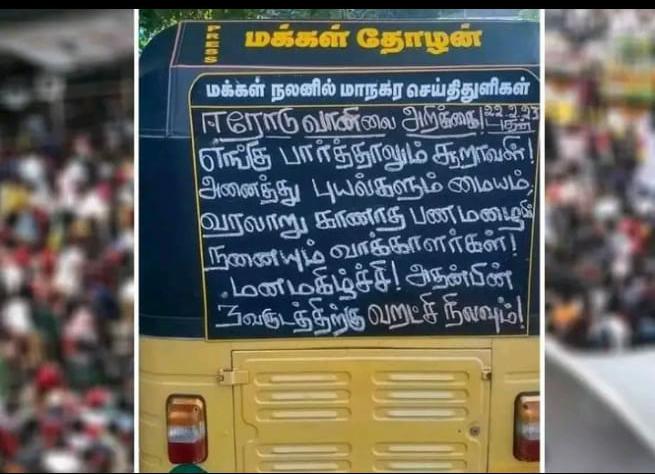 PRESS
மக்கள் தோழன்
மக்கள் நலனில் மாநகர செய்திதுளிகள்
ஈரோடு வானிலை அறிக்கை! 22.2.23
எங்கு பார்த்தாலும் சூறாவளி!
அனைத்து புயல்களும் மையம்.
வரலாறு காணாத பணமழையில்
நனையும் வாக்காளர்கள்!
மனமகிழ்ச்சி! அதன்பின்
3 வருடத்திற்கு வறட்சி நிலவும்!